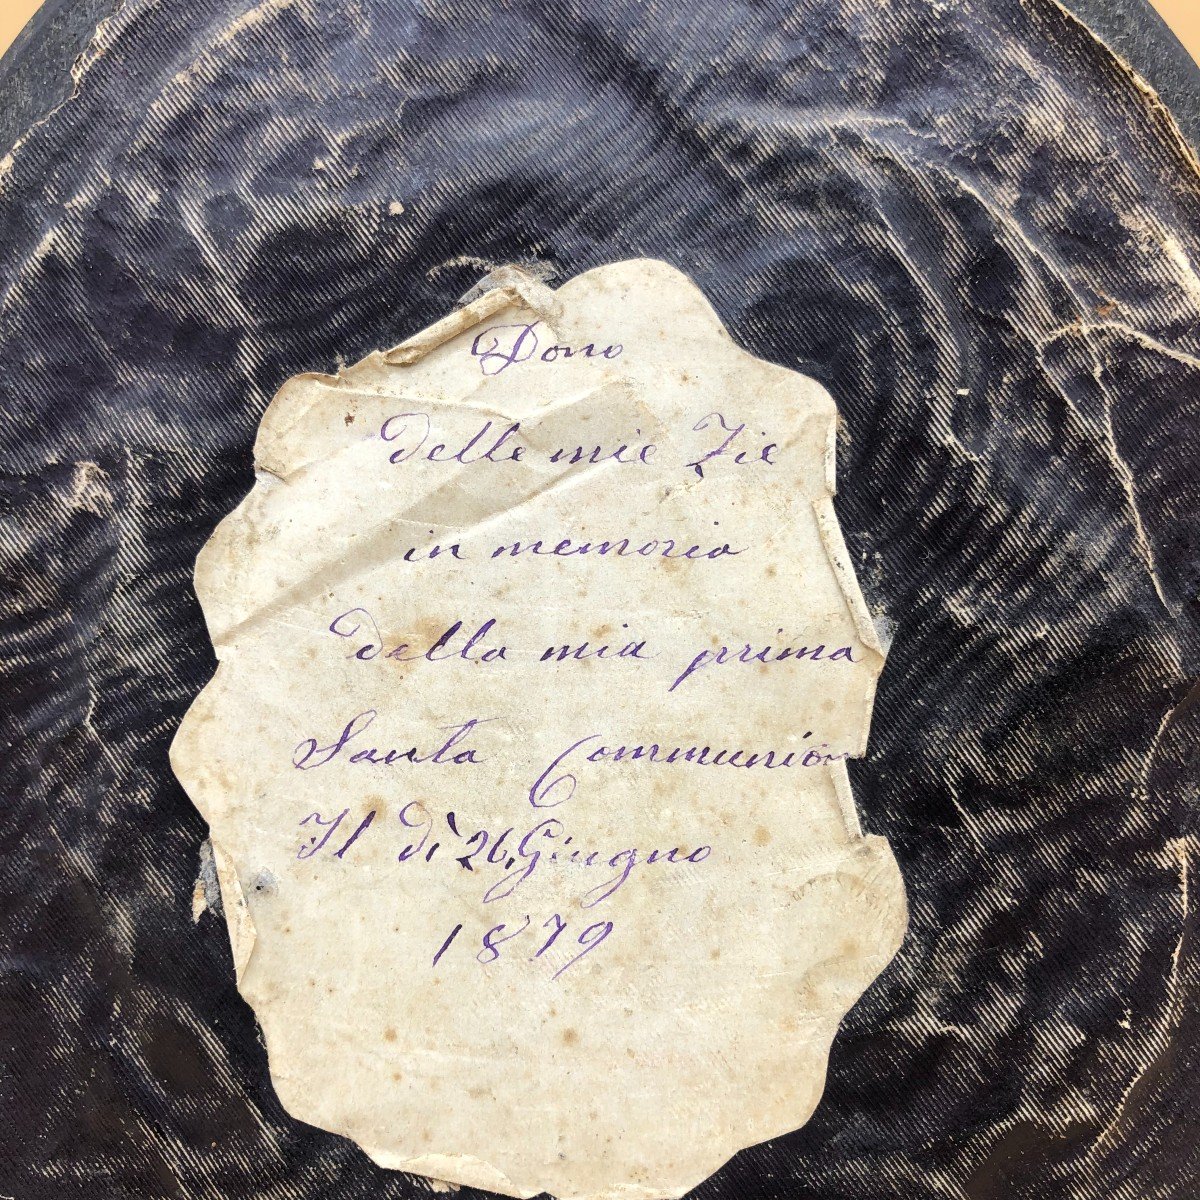 Dono
Delle mie Zie
in memoria
Della mia prima
Santa Communion
Il Dì 26, Giugno
1879